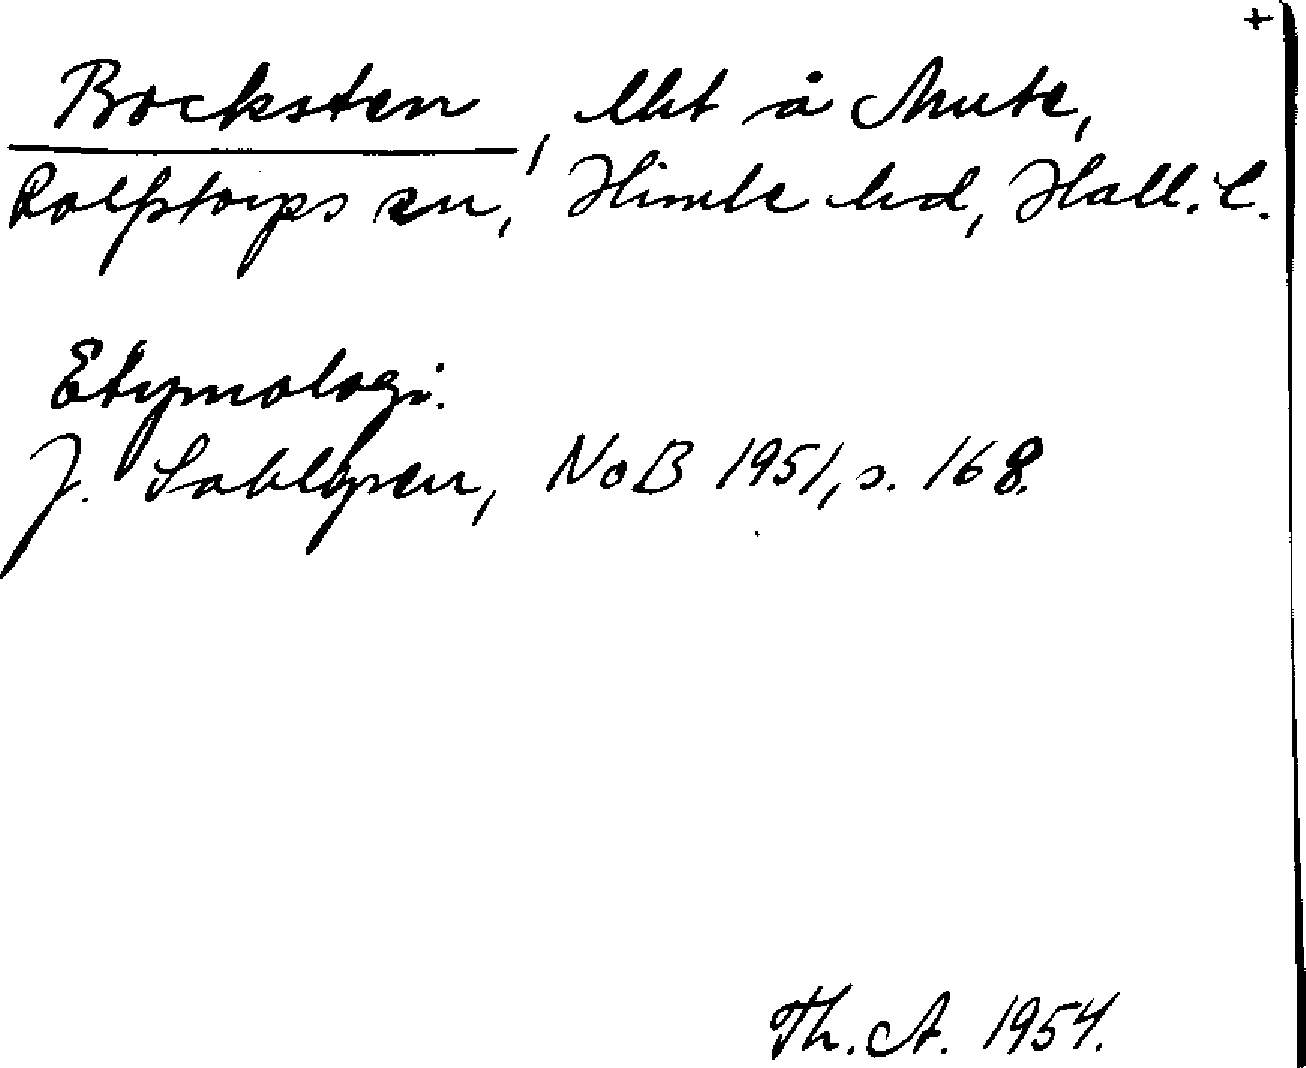 +
Bocksten, lht å Mute,
Rolfstorps sn, Himle hd, Hall. l.
Etymologi.
J. Sahlgren, NoB 1951, s. 168.
Th. A. 1954.